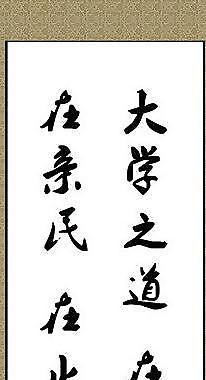 大学之道 在
在亲民 在